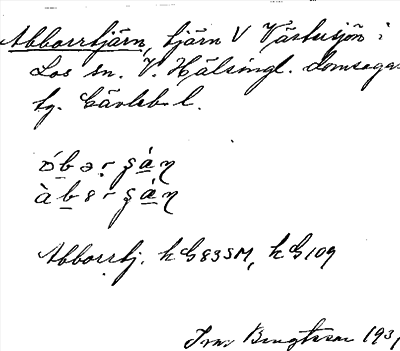 Abborrtjärn, tjärn V Västusjön i
Los sn. V. Hälsingl. domsagas
tg. Gävleb. l.
àbergán
Abborrtj. kG835M, kG109
Bengtsson 1931